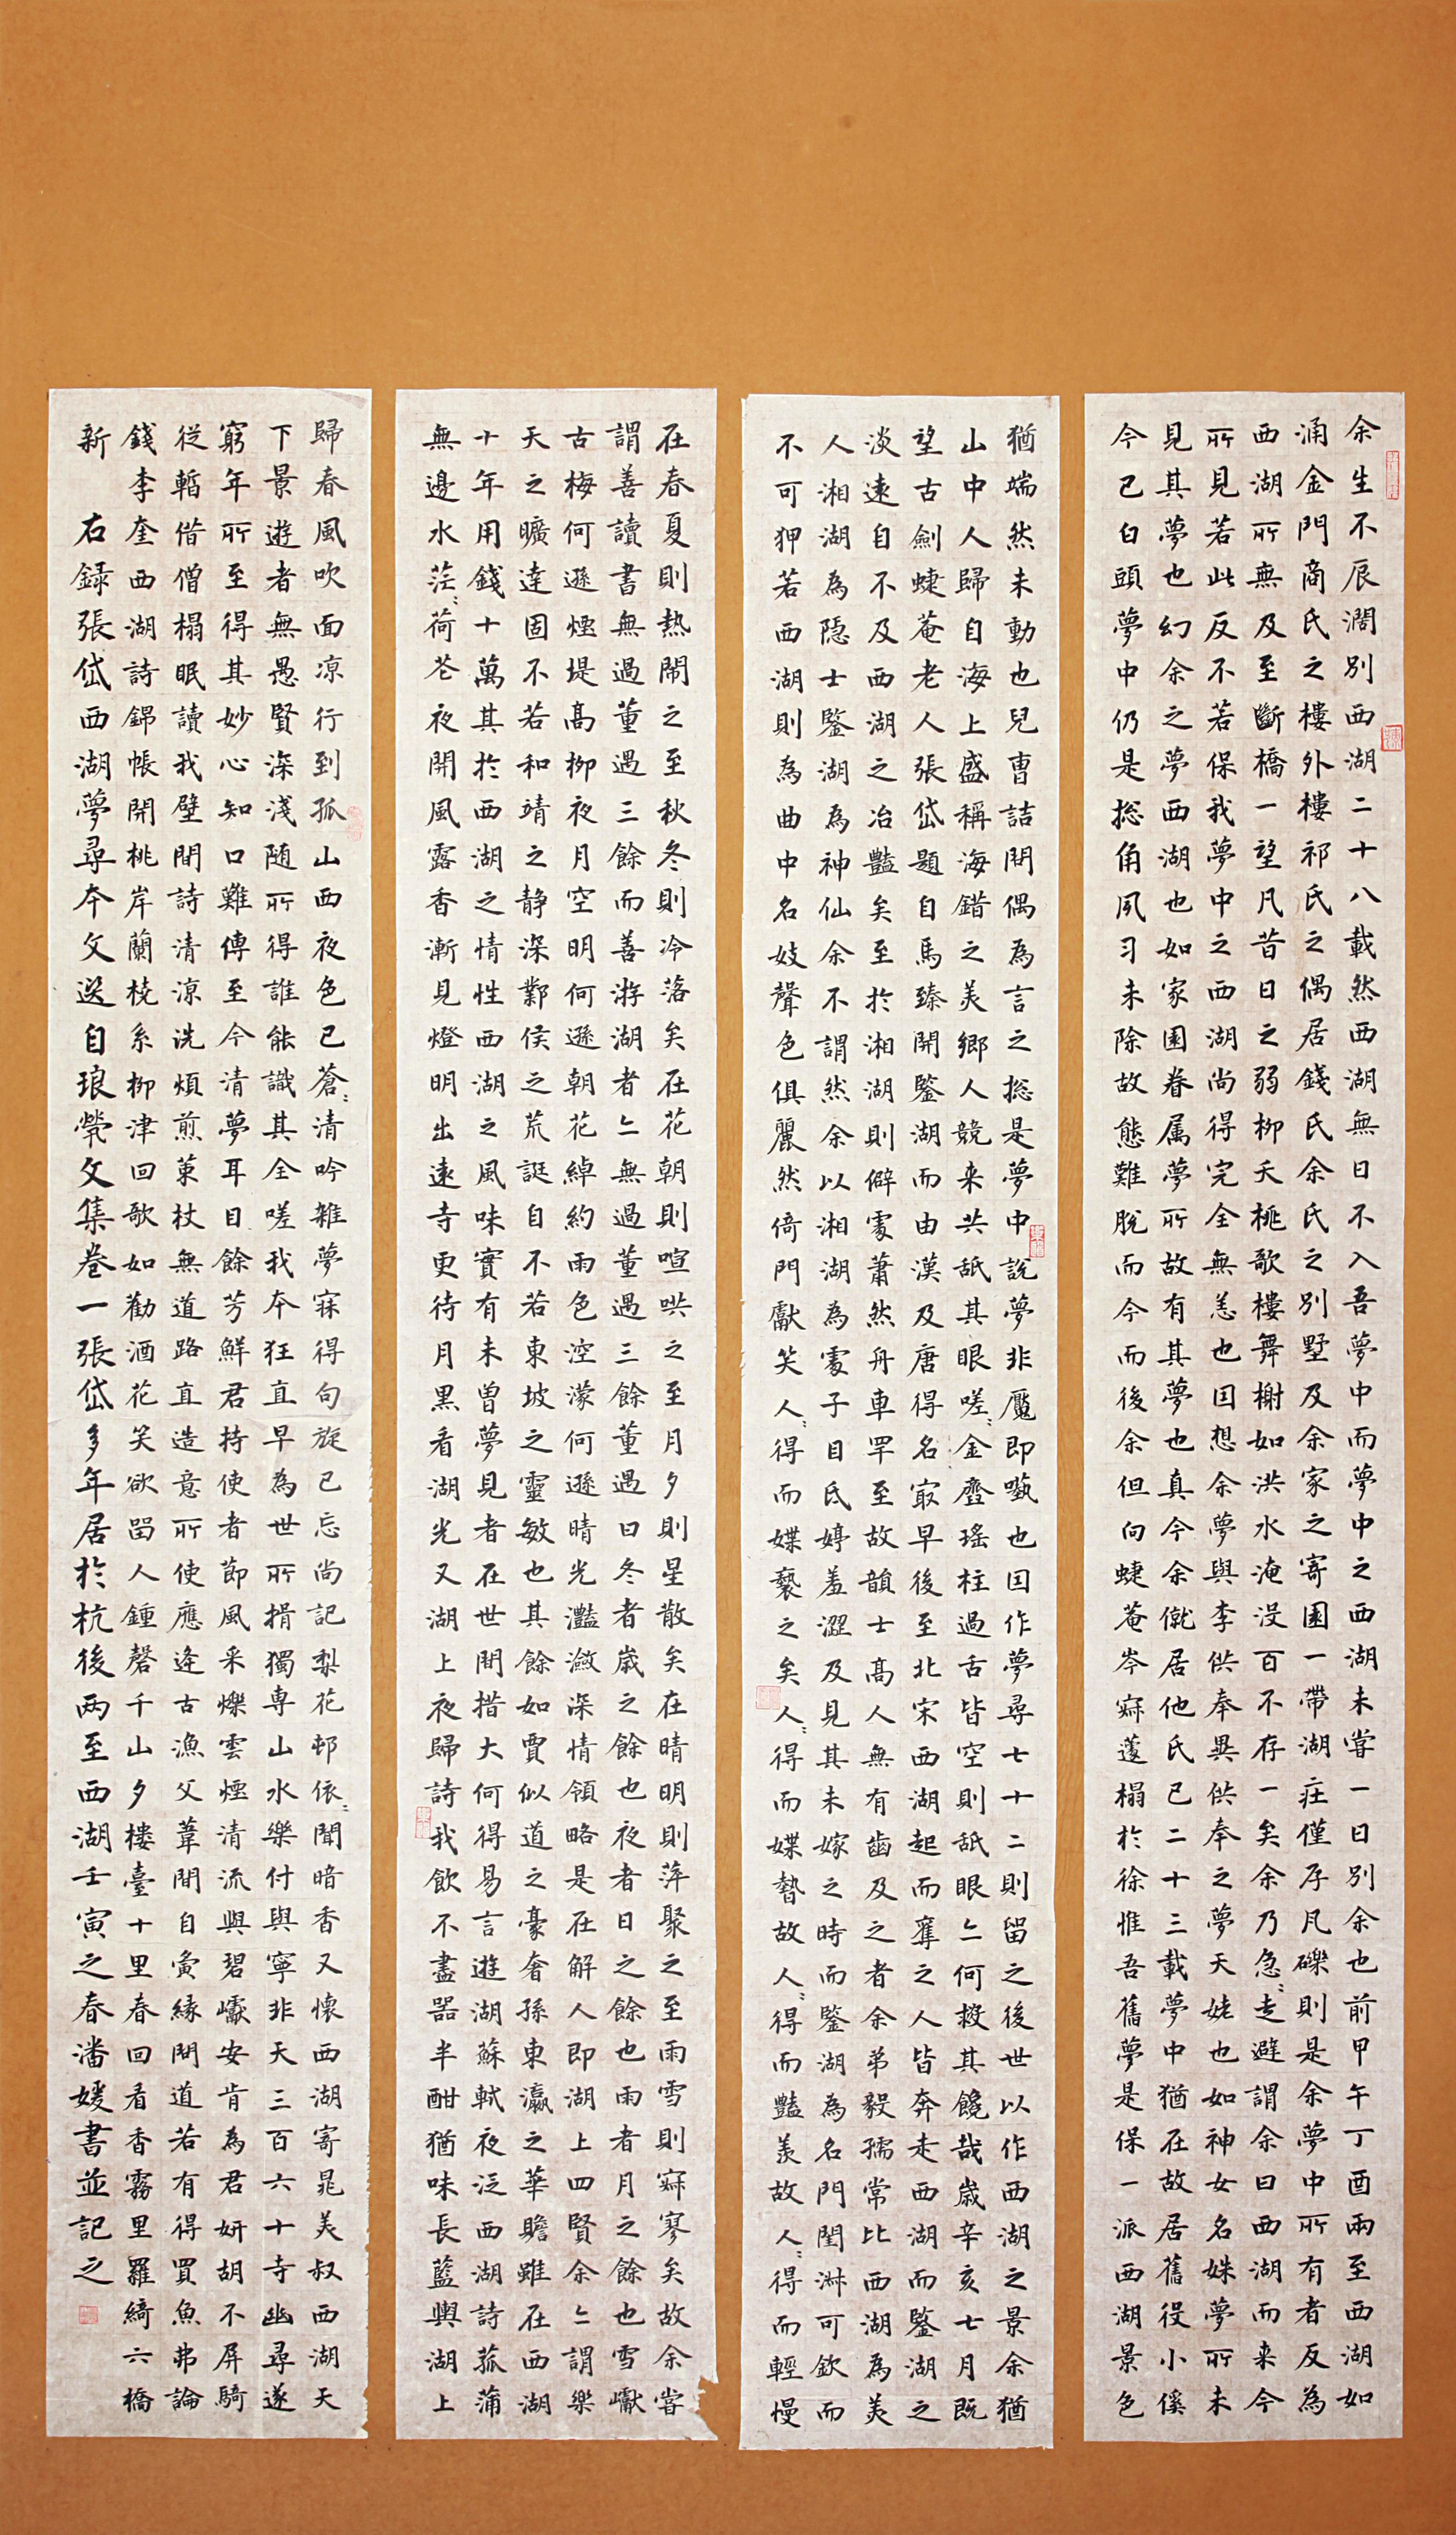 余生不辰濶別西湖二十八載然西湖無日不入吾夢中而夢中之西湖未嘗一日別余也前甲午丁酉兩至西湖如
涌金門商氏之樓外樓祁氏之偶居錢氏余氏之別墅及余家之寄園一帶湖庄僅存凡礫則是余夢中所有者反為
西湖所無及至斷橋一望凡昔日之弱柳夭桃歌樓舞榭如洪水淹没百不存一矣余乃急〻走避謂余曰西湖而来今
所見若此反不若保我夢中之西湖尚得完全無恙也因想余夢與李供奉異供奉之夢天姥也如神女名姝夢所未
見其夢也幻余之夢西湖也如家園眷属夢所故有其夢也真今余僦居他氏已二十三載夢中猶在故居舊役小傒
今已白頭夢中仍是捴角夙习未除故態難脫而今而後余但向蝶菴岑寂蘧榻於徐惟吾舊夢是保一派西湖景色
猶端然未動也兒曺詰問偶為言之捴是夢中說夢非魘即囈也因作夢尋七十二則留之後世以作西湖之景余猶
山中人歸自海上盛稱海錯之美鄉人競来共舐其眼嗟〻金虀瑤柱過舌皆空則舐眼亦何救其饞哉歲辛亥七月既
望古劍蝶菴老人張岱題自馬臻開鑒湖而由漢及唐得名冣早後至北宋西湖起而奪之人皆奔走西湖而鑒湖之
淡遠自不及西湖之冶豔矣至於湘湖則僻處蕭然舟車罕至故韻士高人無有齒及之者余弟毅孺常比西湖為美
人湘湖為隱士鑒湖為神仙余不謂然余以湘湖為處子目氐婷羞澀及見其未嫁之時而鑒湖為名門閨淋可欽而
不可狎若西湖則為曲中名妓聲色俱麗然倚門獻笑人〻得而媟褻之矣人〻得而媟褻故人〻得而豔羨故人〻得而輕慢
在春夏則熱鬧之至秋冬則冷落矣在花朝則喧哄之至月夕則星散矣在晴明則萍聚之至雨雪則寂寥矣故余嘗
謂善讀書無過董遇三餘而善游湖者亦無過董遇三餘董遇曰冬者歲之餘也夜者日之餘也雨者月之餘也雪巘
古梅何遜煙堤高柳夜月空明何遜朝花綽約雨色涳濛何遜晴光灩瀲深情領略是在解人即湖上四賢余亦謂樂
天之曠達固不若和靖之静深鄴侯之荒誕自不若東坡之靈敏也其餘如賈似道之豪奢孫東瀛之華贍雖在西湖
十年用錢十萬其於西湖之情性西湖之風味實有未曽夢見者在世間措大何得易言遊湖蘇軾夜泛西湖詩菰蒲
無邊水茫〻荷花夜開風露香漸見燈明出遠寺更待月黑看湖光又湖上夜歸詩我飲不盡器半酣猶味長藍輿湖上
歸春風吹面凉行到孤山西夜色已蒼〻清吟雜夢寐得句旋已忘尚記梨花邨依〻聞暗香又懷西湖寄晁美叔西湖天
下景遊者無愚賢深淺随所得誰能識其全嗟我本狂直早為世所捐獨專山水樂付與寧非天三百六十寺幽尋遂
窮年所至得其妙心知口難傳至今清夢耳目餘芳鮮君持使者節風采爍雲煙清流與碧巘安肯為君妍胡不屏騎
從暫借僧榻眠讀我壁間詩清凉洗煩煎䇿杖無道路直造意所使應逢古漁父葦間自夤緣問道若有得買魚弗論
錢李奎西湖詩錦帳開桃岸蘭橈系柳津回歌如勸酒花笑欲畱人鍾磬千山夕樓臺十里春回看香霧里羅綺六橋
新 右録張岱西湖夢尋本文送自琅嬛文集卷一張岱多年居於杭後两至西湖壬寅之春潘媛書並記之